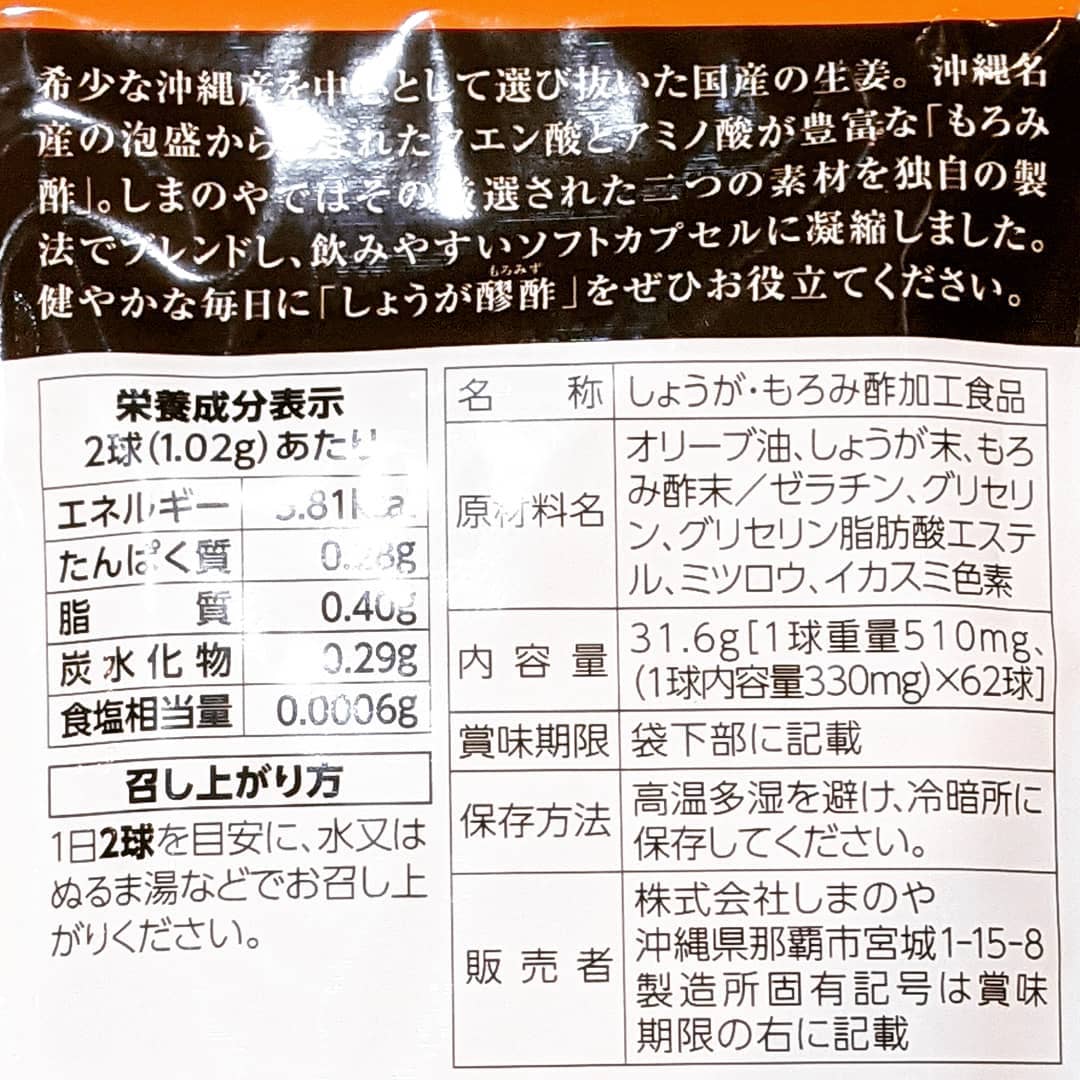 希少な沖縄産を中心として選び抜いた国産の生姜。沖縄名
産の泡盛から まれたクエン酸とアミノ酸が豊富な「もろみ
酢」。しまのやではその 選された二つの素材を独自の製
法でブレンドし、飲みやすいソフトカプセルに凝縮しました。
もろみず
健やかな毎日に「しょうが醪酢」をぜひお役立てください。
栄養成分表示
2球(1.02g)あたり
エネルギー
たんぱく質
脂質 0.40g
炭水化物 0.29g
食塩相当量 0.0006g
召し上がり方
1日2球を目安に、水又は
ぬるま湯などでお召し上
がりください。
名称 しょうが・もろみ酢加工食品
原材料名 オリーブ油、しょうが末、もろ
み酢末/ゼラチン、グリセリ
ン、グリセリン脂肪酸エステ
ル、ミツロウ、イカスミ色素
内容量 31.6g[1球重量510mg、
(1球内容量330mg)×62球]
賞味期限 袋下部に記載
保存方法 高温多湿を避け、冷暗所に
保存してください。
販売者 株式会社しまのや
沖縄県那覇市宮城1-15-8
製造所固有記号は賞味
期限の右に記載